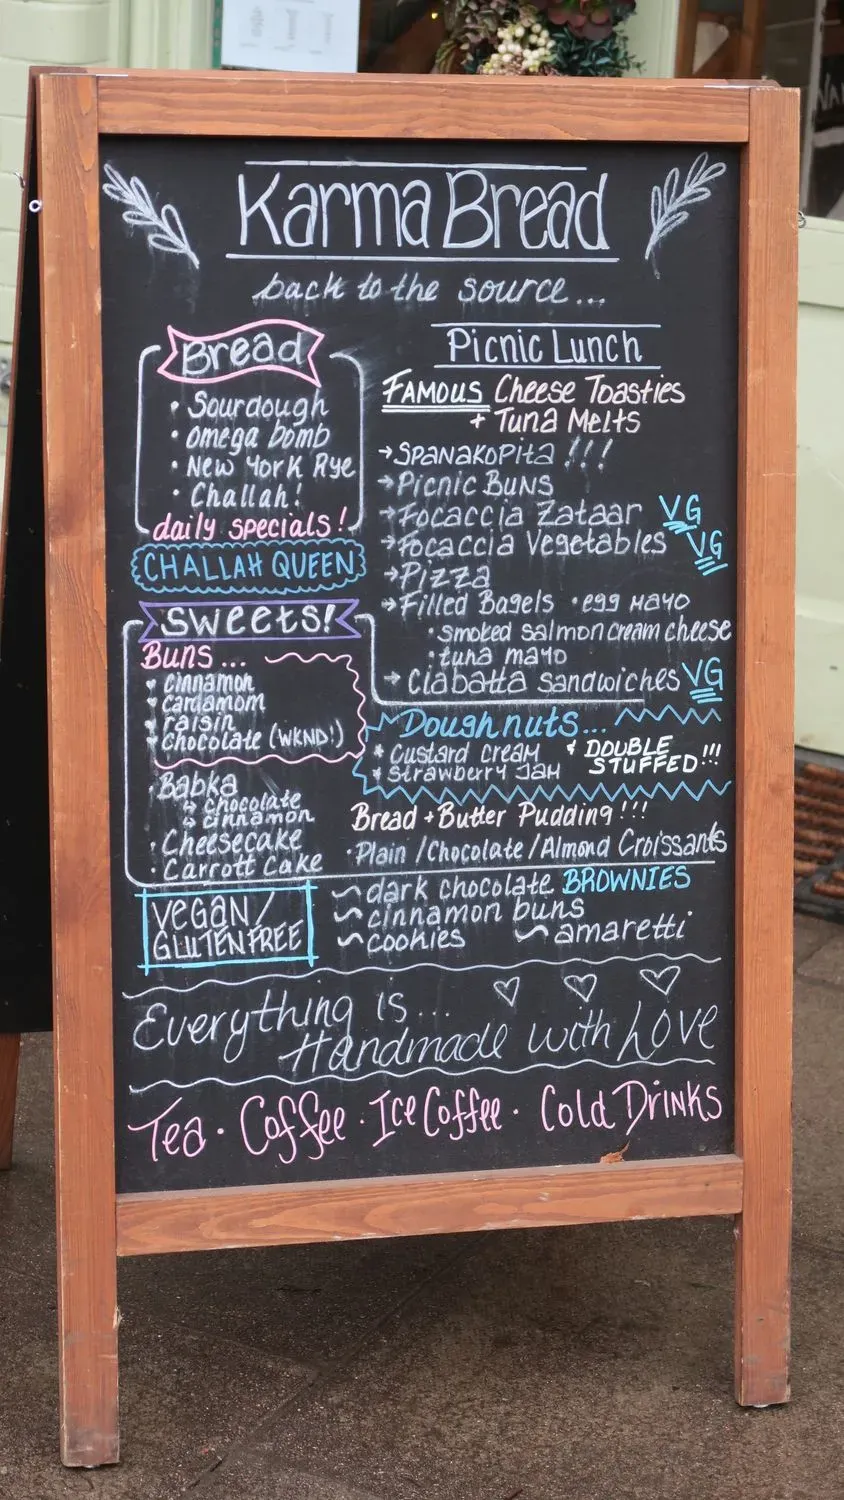 Karma Bread
back to the source...
Bread
• Sourdough
• omega bomb
• New York Rye
• Challah!
daily specials!
CHALLAH QUEEN
Picnic Lunch
FAMOUS Cheese Toasties
+ Tuna Melts
→ Spanakopita !!!
→ Picnic Buns
→ Focaccia Zataar VG
→ Focaccia Vegetables VG
→ Pizza
→ Filled Bagels • egg mayo
• smoked salmon cream cheese
• tuna mayo
→ Ciabatta sandwiches VG
Sweets!
Buns...
♥ cinnamon
♥ cardamom
♥ raisin
♥ chocolate (WKND!)
• Babka
↳ chocolate
↳ cinnamon
• Cheesecake
• Carrott Cake
Doughnuts...
* custard cream
* strawberry Jam
& DOUBLE
STUFFED!!!
Bread + Butter Pudding!!!
• Plain / Chocolate / Almond Croissants
Vegan/
GLUTEN FREE
~ dark chocolate BROWNIES
~ cinnamon buns
~ cookies ~ amaretti
Everything is... ♡ ♡ ♡
Handmade with Love
Tea • Coffee • Ice Coffee • Cold Drinks